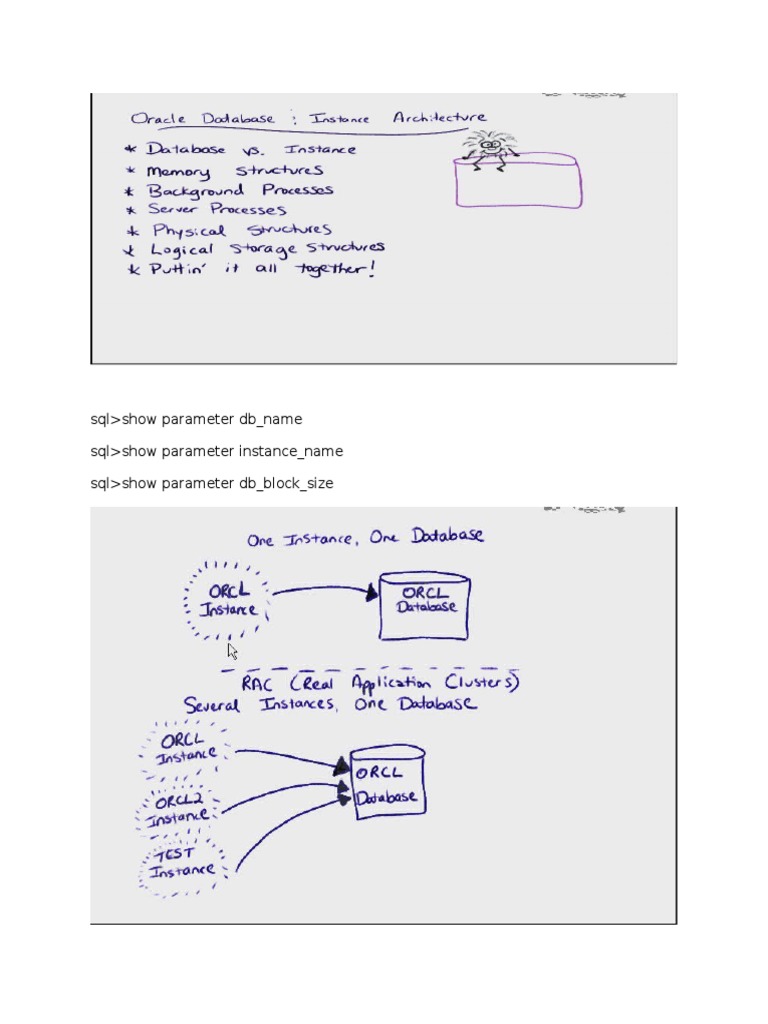 Oracle Database : Instance Architecture
* Database vs. Instance
* Memory Structures
* Background Processes
* Server Processes
* Physical Structures
* Logical Storage Structures
* Puttin' it all together!
sql>show parameter db_name
sql>show parameter instance_name
sql>show parameter db_block_size
One Instance, One Database
ORCL
Instance
ORCL
Database
RAC (Real Application Clusters)
Several Instances, One Database
ORCL
Instance
ORCL2
Instance
TEST
Instance
ORCL
Database